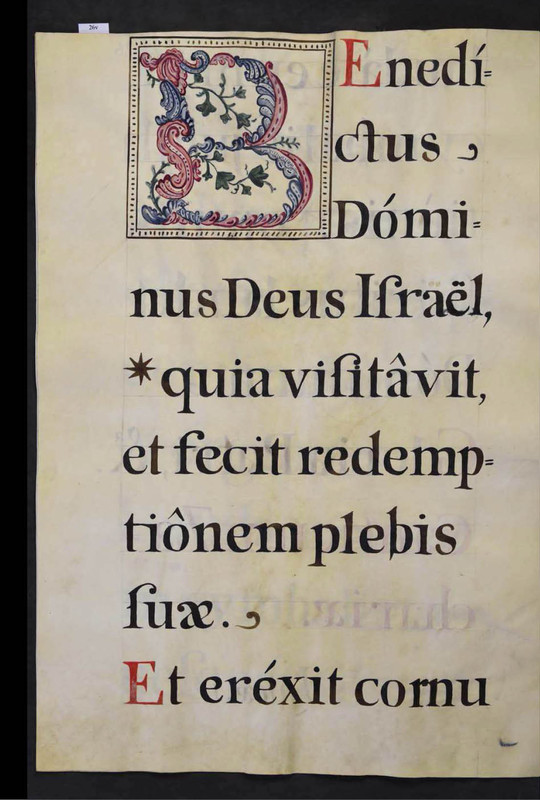 26v
BEnedí=
ctus
Dómi=
nus Deus Iſraël,
*quia viſitâvit,
et fecit redemp=
tiônem plebis
ſuæ.
Et eréxit cornu